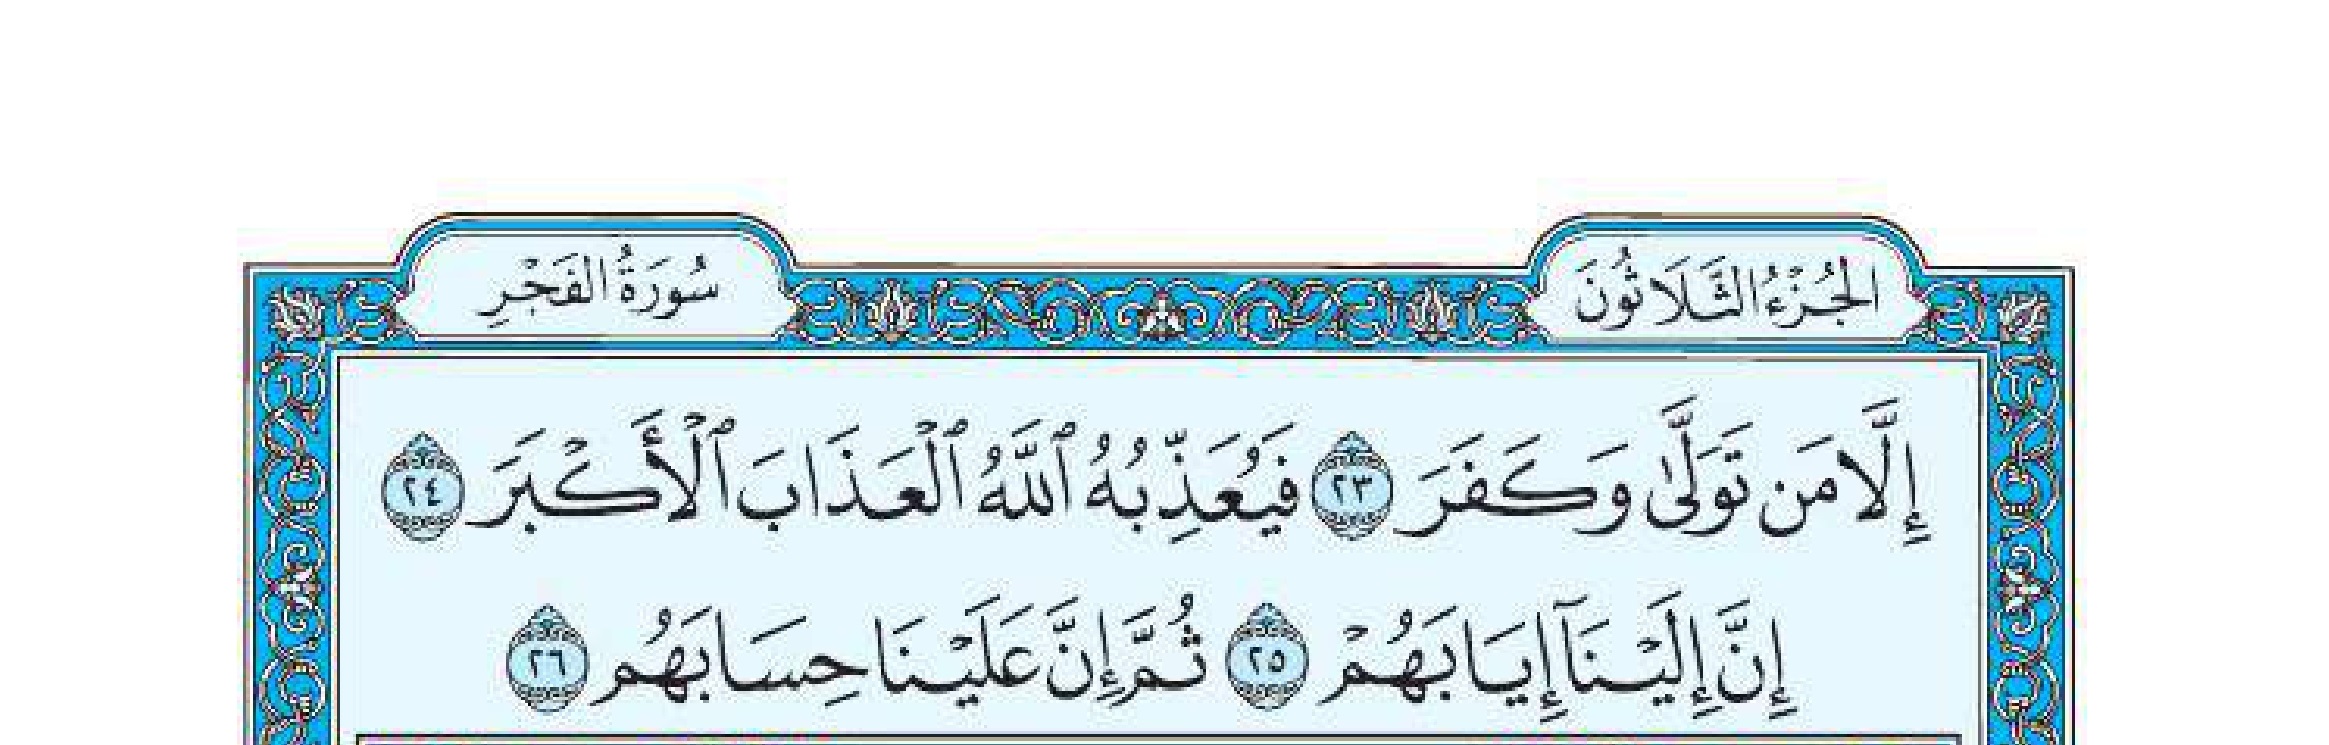 الجُزْءُ الثَّلَاثُونَ
سُورَةُ الفَجْرِ
إِلَّا مَن تَوَلَّىٰ وَكَفَرَ ٢٣ فَيُعَذِّبُهُ ٱللَّهُ ٱلْعَذَابَ ٱلْأَكْبَرَ ٢٤
إِنَّ إِلَيْنَآ إِيَابَهُمْ ٢٥ ثُمَّ إِنَّ عَلَيْنَا حِسَابَهُم ٢٦